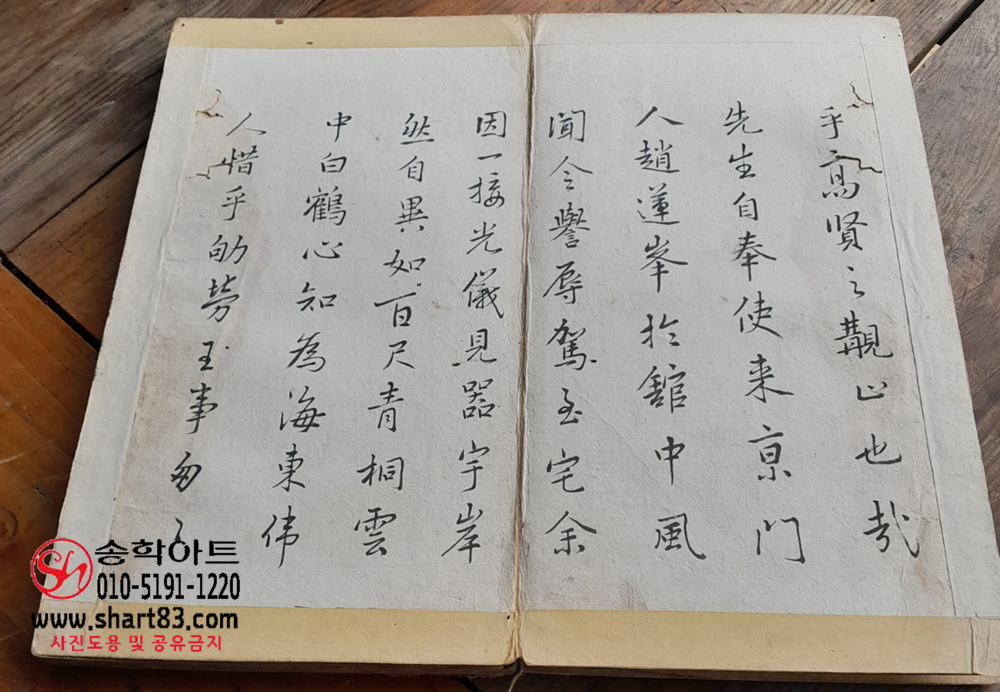 乎高賢之覯止也哉
先生自奉使来京門
人趙蓮峯於舘中風
聞令譽辱駕至宅余
因一接光儀見器宇岸
然自異如百尺青桐雲
中白鶴心知為海東伟
人惜乎劬勞王事匆〻
송학아트
010-5191-1220
www.shart83.com
사진도용 및 공유금지